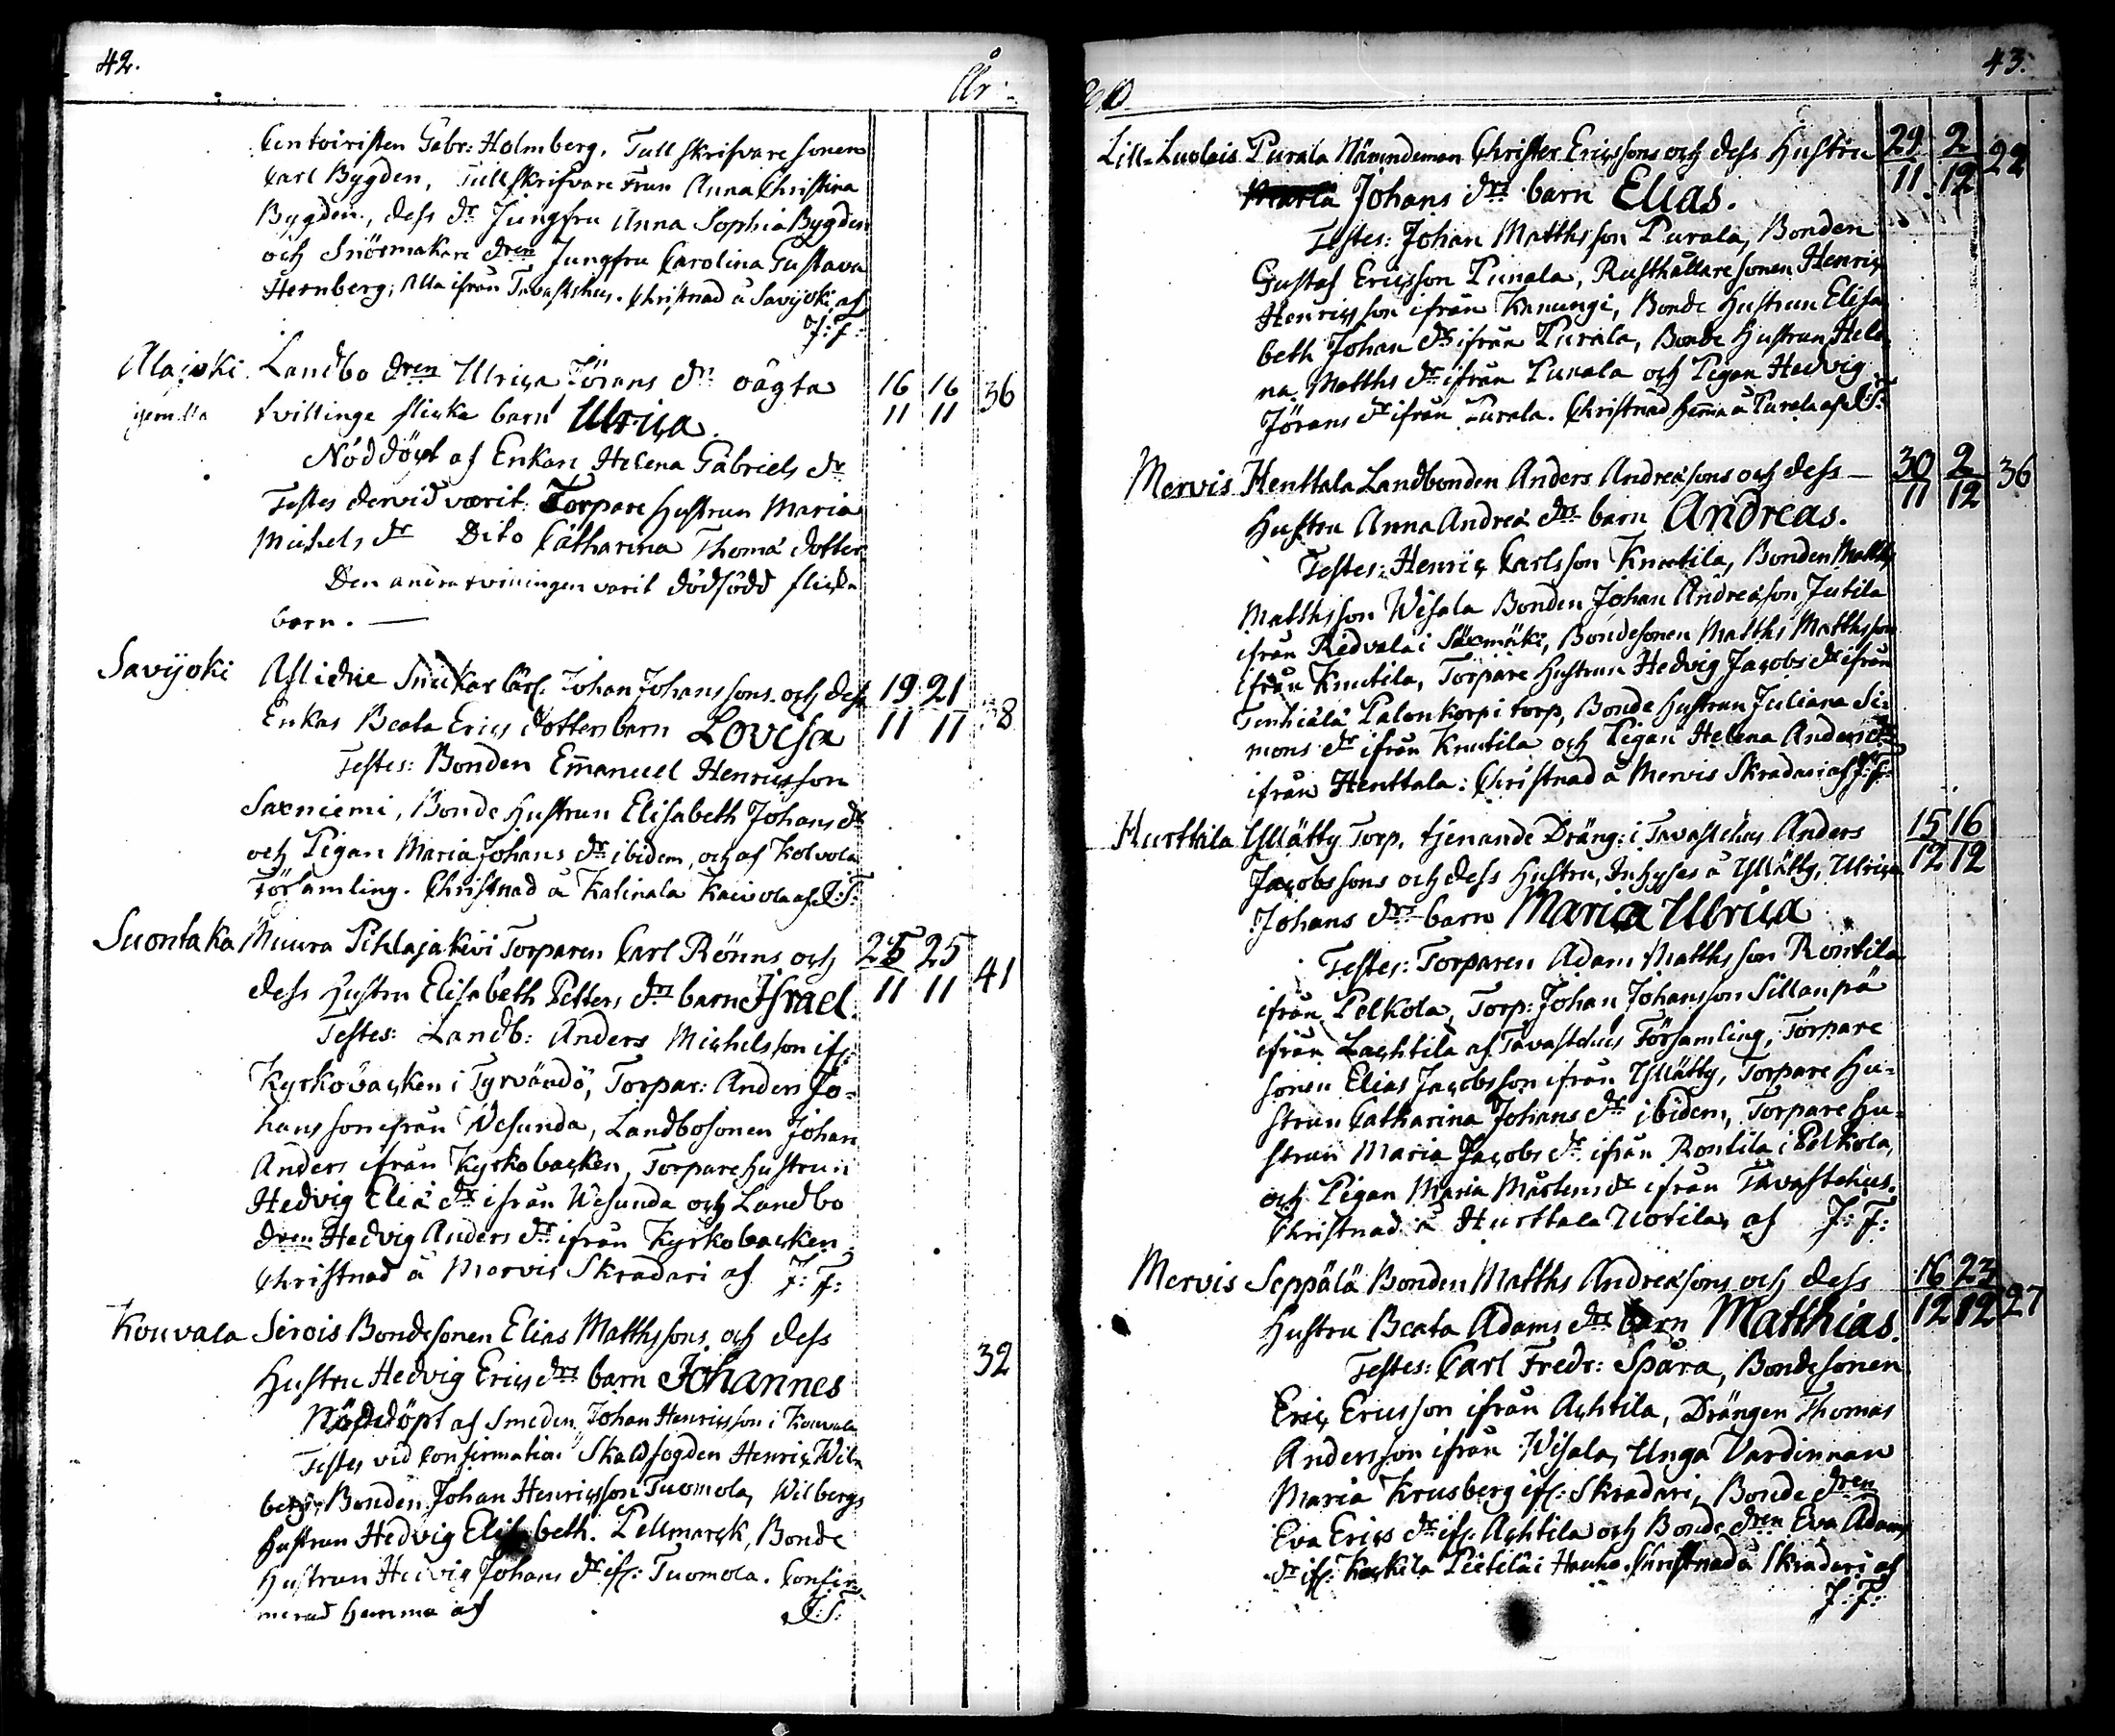 42.
År
Contoiristen Gabr: Holmberg. Tullskrifvare sonen
Carl Bygden, Tullskrifvare Frun Anna Christina
Bygden, dess dr Jungfru Anna Sophia Bygden
och Snörmakare dren Jungfru Carolina Gustava
Hernberg; alla ifrån Tavastehus. Christnad å Savijoki af
J: F:
Alajoki Landbo dren Ulrica Jörans drs oägta 16 16 36
tvillinge flicke barn Ulrica. 11 11
Nöddöpt af Enkan Helena Gabriels dr
Testes dervid varit Torpare Hustrun Maria
Michels dr Dito Catharina Thomæ dotter
Den andra tvillingen varit dödfödd flicke
barn. —
Savijoki Aflidne Snickar Johan Johanssons och dess 19 21 38
Enkas Beata Erics dotters barn Lovisa 11 11
Testes: Bonden Emanuel Henricsson
Saxniemi, Bonde Hustrun Elisabeth Johans dr
och Pigan Maria Johans dr ibidem, och af Kolvola
Församling. Christnad å Katinala af J: F:
Suontaka Muura Pihlajakivi Torparen Carl Rönns och 25 25 41
dess Hustru Elisabeth Petters drs barn Israel. 11 11
Testes: Landb: Anders Michelsson ifr:
Kyrkobacken i Tyrvändö, Torpar: Anders Jo-
hansson ifrån Wesunda, Landbosonen Johan
Anders ifrån Kyrkobacken, Torpare Hustrun
Hedvig Eliæ dr ifrån Wesunda och Landbo
dren Hedvig Anders dr ifrån Kyrkobacken
Christnad å Mervis Skradari af J: F:
Kouvala Sirois Bondesonen Elias Matthssons och dess 32
Hustru Hedvig Erics drs barn Johannes
Nöddöpt af Smeden Johan Henricsson i Kouvala
Testes vid Confirmation Skaldfogden Henric Wil-
berg, Bonden Johan Henricsson Tuomola, Wilbergs
Hustrun Hedvig Elisabeth Pellmarck, Bonde
Hustrun Hedvig Johans dr ifr: Tuomola. Confir-
merad hemma af J: F:
43.
Lill-Luolais Purala Nämndeman Christer Ericssons och dess Hustru 29 2 22
Maria Johans drs barn Elias. 11 12
Testes: Johan Matthsson Purala, Bonden
Gustaf Ericsson Punala, Rusthållare sonen Henric
Henricsson ifrån Kanungi, Bonde Hustrun Elisa
beth Johan dr ifrån Purala, Bonde Hustrun Hele
na Matths dr ifrån Punala och Pigan Hedvig
Jörans dr ifrån Purala. Christnad hemma å Purala af J: F:
Mervis Henttala Landbonden Anders Andreæsons och dess — 30 2 36
Hustru Anna Andreæ drs barn Andreas. 11 12
Testes: Henric Carlsson Knutila, Bonden Matths
Matthsson Wisala Bonden Johan Andreæson Jutila
ifrån Ridvala i Säxmäki, Bondesonen Matths Matthsson
ifrån Knutila, Torpare Hustrun Hedvig Jacobs dr ifrån
Tenhiälä Palonkorpi torp, Bonde Hustrun Juliana Si-
mons dr ifrån Knutila och Pigan Helena Anders dr
ifrån Henttala: Christnad å Mervis Skradari af J: F:
Hurttila Yllätty Torp. tjenande Dräng: i Tavastehus Anders 15 16
Jacobssons och dess Hustru, Inhyses å Yllätty, Ulrica 12 12
Johans drs barn Maria Ulrica
Testes: Torparen Adam Matthsson Rontila
ifrån Pelkola, Torp: Johan Johansson Sillanpä
ifrån Lachtila af Tavastehus Församling, Torpare
sonen Elias Jacobsson ifrån Yllätty, Torpare Hu-
strun Catharina Johans dr ibidem, Torpare Hu-
strun Maria Jacobs dr ifrån Rontila i Pelkola,
och Pigan Maria Mårtens dr ifrån Tavastehus.
Christnad å Hurttala Uotila, af J: F:
Mervis Seppälä Bonden Matths Andreæsons och dess 16 23 27
Hustru Beata Adams drs barn Matthias. 12 12
Testes: Carl Fredr: Spåra, Bondesonen
Eric Ericsson ifrån Achtila, Drängen Thomas
Andersson ifrån Wisala, Unga Vardinnan
Maria Krusberg ifr: Skradari, Bonde dren
Eva Erics dr ifr: Achtila och Bonde dren Eva Adams
dr ifr: Kackila Pietilä i Hauho. Christnad å Skradari af
J: F: